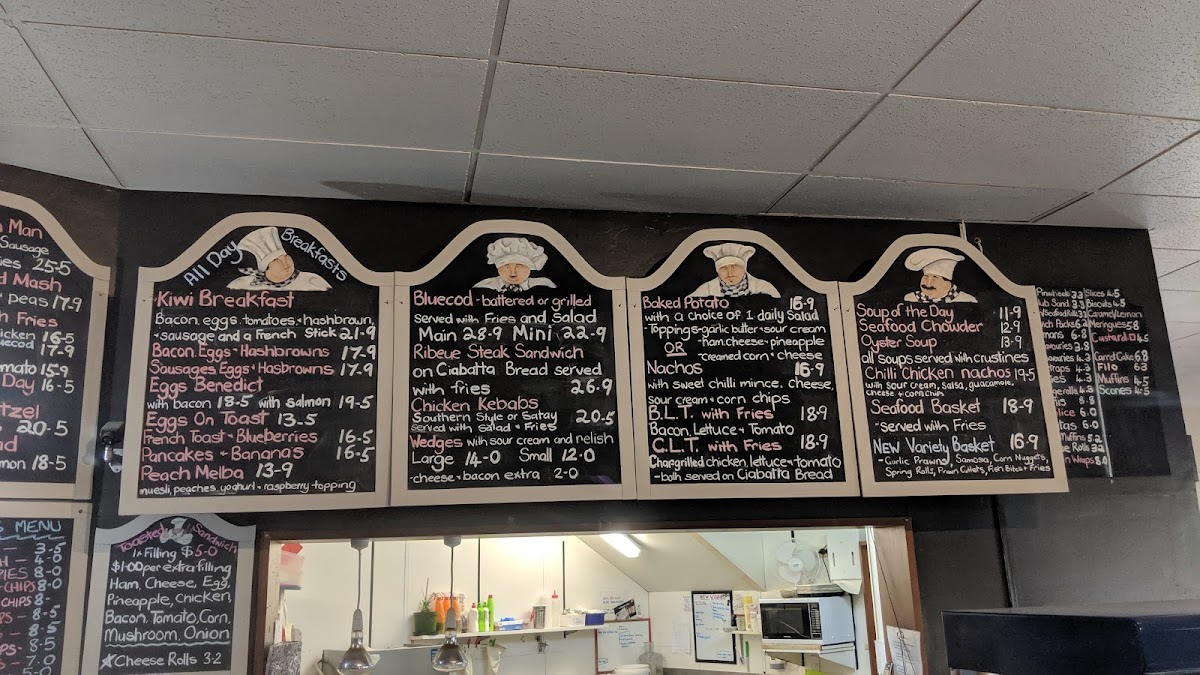 Man
Sausage
25-5
Mash
peas 17-9
Fries
16-5
17-9
15-9
Day 16-5
20-5
18-5
All Day Breakfasts
Kiwi Breakfast
Bacon, eggs, tomatoes, + hashbrown,
+ sausage and a French Stick 21-9
Bacon Eggs + Hashbrowns 17-9
Sausages Eggs + Hasbrowns 17-9
Eggs Benedict
with bacon 18-5 with salmon 19-5
Eggs On Toast 13-5
French Toast + Blueberries 16-5
Pancakes + Bananas 16-5
Peach Melba 13-9
muesli, peaches, yoghurt + raspberry topping
Bluecod - battered or grilled
served with Fries and salad
Main 28-9 Mini 22-9
Ribeye Steak Sandwich
on Ciabatta Bread served
with fries 26-9
Chicken Kebabs
Southern Style or Satay 20-5
served with Salad + Fries
Wedges with sour cream and relish
Large 14-0 Small 12-0
-cheese + bacon extra 2-0
Baked Potato 16-9
with a choice of 1 daily Salad
Toppings-garlic butter + sour cream
-ham, cheese + pineapple
OR
-creamed corn + cheese
Nachos 16-9
with sweet chilli mince, cheese,
sour cream + corn chips
B.L.T. with Fries 18-9
Bacon, Lettuce + Tomato
C.L.T. with Fries 18-9
Chargrilled chicken, lettuce + tomato
- both served on Ciabatta Bread
Soup of the Day 11-9
Seafood Chowder 12-9
Oyster Soup 13-9
all soups served with crustines
Chilli Chicken nachos 19-5
with sour cream, salsa, guacamole,
cheese + corn chips
Seafood Basket 18-9
- served with Fries
NEW Variety Basket 16-9
- Garlic Prawns, Samosa, Corn Nuggets,
Spring Rolls, Prawn Cutlets, Fish Bites + Fries
Pinwheels 3.2
Slices 4-5
Biscuits 4-5
Caramel/Lemon
Meringues 5.8
Custard 4.5
Carrot Cake 6.8
Filo 6.3
Muffins 4.5
Scones 4.5
MENU
3-5
4-0
PIES 8-0
CHIPS 8-0
CHIPS 8-
8-5
8-5
8-5
7-0
Toasted Sandwich
1 x Filling $5-0
$1-00 per extra filling
Ham, Cheese, Egg,
Pineapple, chicken,
Bacon, Tomato, Corn,
Mushroom, Onion
Cheese Rolls 3-2